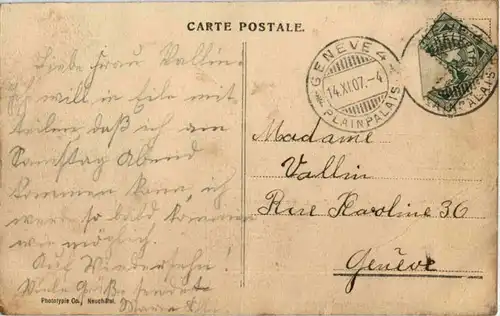 CARTE POSTALE.
Liebe Frau Vallin.
Ich will in Eile mit
teilen, daß ich am
Samstag Abend
kommen kann, ich
werde so bald kommen
wie möglich.
Auf Wiedersehn!
Viele Grüße sendet
Marie
Phototypie Co., Neuchâtel.
GENÈVE 4
14.XI.07.-4
PLAINPALAIS
Madame
Vallin
Rue Karoline 36
Genève